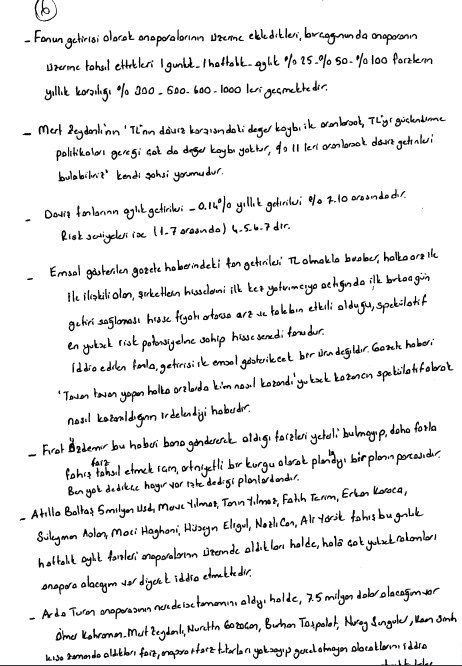 6
- Fonun getirisi olarak anaparalarının üzerine ekledikleri, borcağunun da anaparanın
üzerine tahsil ettikleri 1 günlük - 1 haftalık - aylık % 25 - % 50 - % 100 faizlerin
yıllık karşılığı % 300 - 500 - 600 - 1000 leri geçmektedir.
- Mert Zeydanlı'nın 'TL'nin döviz karşısındaki değer kaybı ile oranlarsak, TL'yi güçlendirme
politikaları gereği çok da değer kaybı yoktur, % 11 leri oranlarsak döviz getirileri
bulabiliriz' kendi şahsi yorumudur.
- Döviz fonlarının aylık getirileri - 0.14% yıllık getirileri % 7-10 arasındadır.
Risk seviyeleri ise (1-7 arasında) 4-5-6-7 dir.
- Emsal gösterilen gazete haberindeki fon getirileri TL olmakla beraber, halka arz ile
ile ilişkili olan, şirketlerin hisselerini ilk kez yatırımcıya açtığında ilk birkaç gün
getiri sağlaması hisse fiyatı artarsa arz ve talebin etkili olduğu, spekülatif
en yüksek risk potansiyeline sahip hisse senedi fonudur.
İddia edilen fonla, getirisi ile emsal gösterilecek bir ürün değildir. Gazete haberi
'Tavan tavan yapan halka arzlarda kim nasıl kazandı' yüksek kazancın spekülatif olarak
nasıl kazanıldığının irdelendiği haberdir.
- Fırat Özdemir bu haberi bana göndererek aldığı faizleri yeterli bulmayıp, daha fazla
fahiş faiz tahsil etmek için, art niyetli bir kurgu olarak planlayıp bir planın parçasıdır.
Ben yok dedikçe hayır var işte dediği planlardandır.
- Atilla Baltaş 5 milyon Usd, Merve Yılmaz, Tarın Yılmaz, Fatih Terim, Erkan Karaca,
Süleyman Aslan, Maci Haghani, Hüseyin Eligul, Nazlı Can, Ali Yörük fahiş bu günlük
haftalık aylık faizleri anaparalarının üzerinde aldıkları halde, hala çok yüksek rakamları
anapara alacağım var diyerek iddia etmektedir.
- Arda Turan anaparasının neredeyse tamamını aldığı halde, 7.5 milyon dolar alacağım var
Ömer Kahraman, Mert Zeydanlı, Nurettin Burhan Taşpolat, Nuray Şengüler,
kısa zamanda aldıkları faiz, anapara + faiz tutarları yoksayıp gerçek olmayan alacaklarını iddia